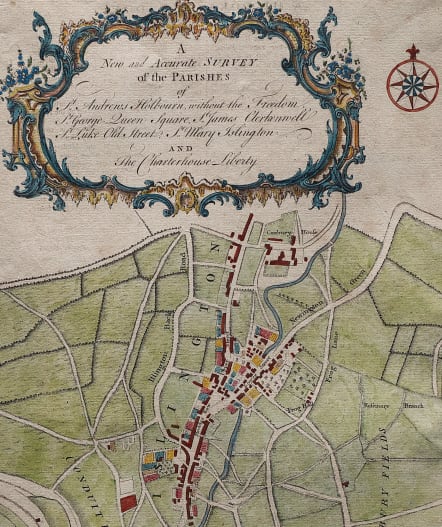 A
New and Accurate SURVEY
of the PARISHES
of
St. Andrews Holbourn, without the Freedom
St. George Queen Square, St. James Clerkenwell
St. Luke Old Street, St. Mary Islington
AND
The Charterhouse Liberty
Canbury House
Newington Green
Islington Back Road
ISLINGTON
Frog Lane
Frog Hall
Rosemary Branch
FIELDS